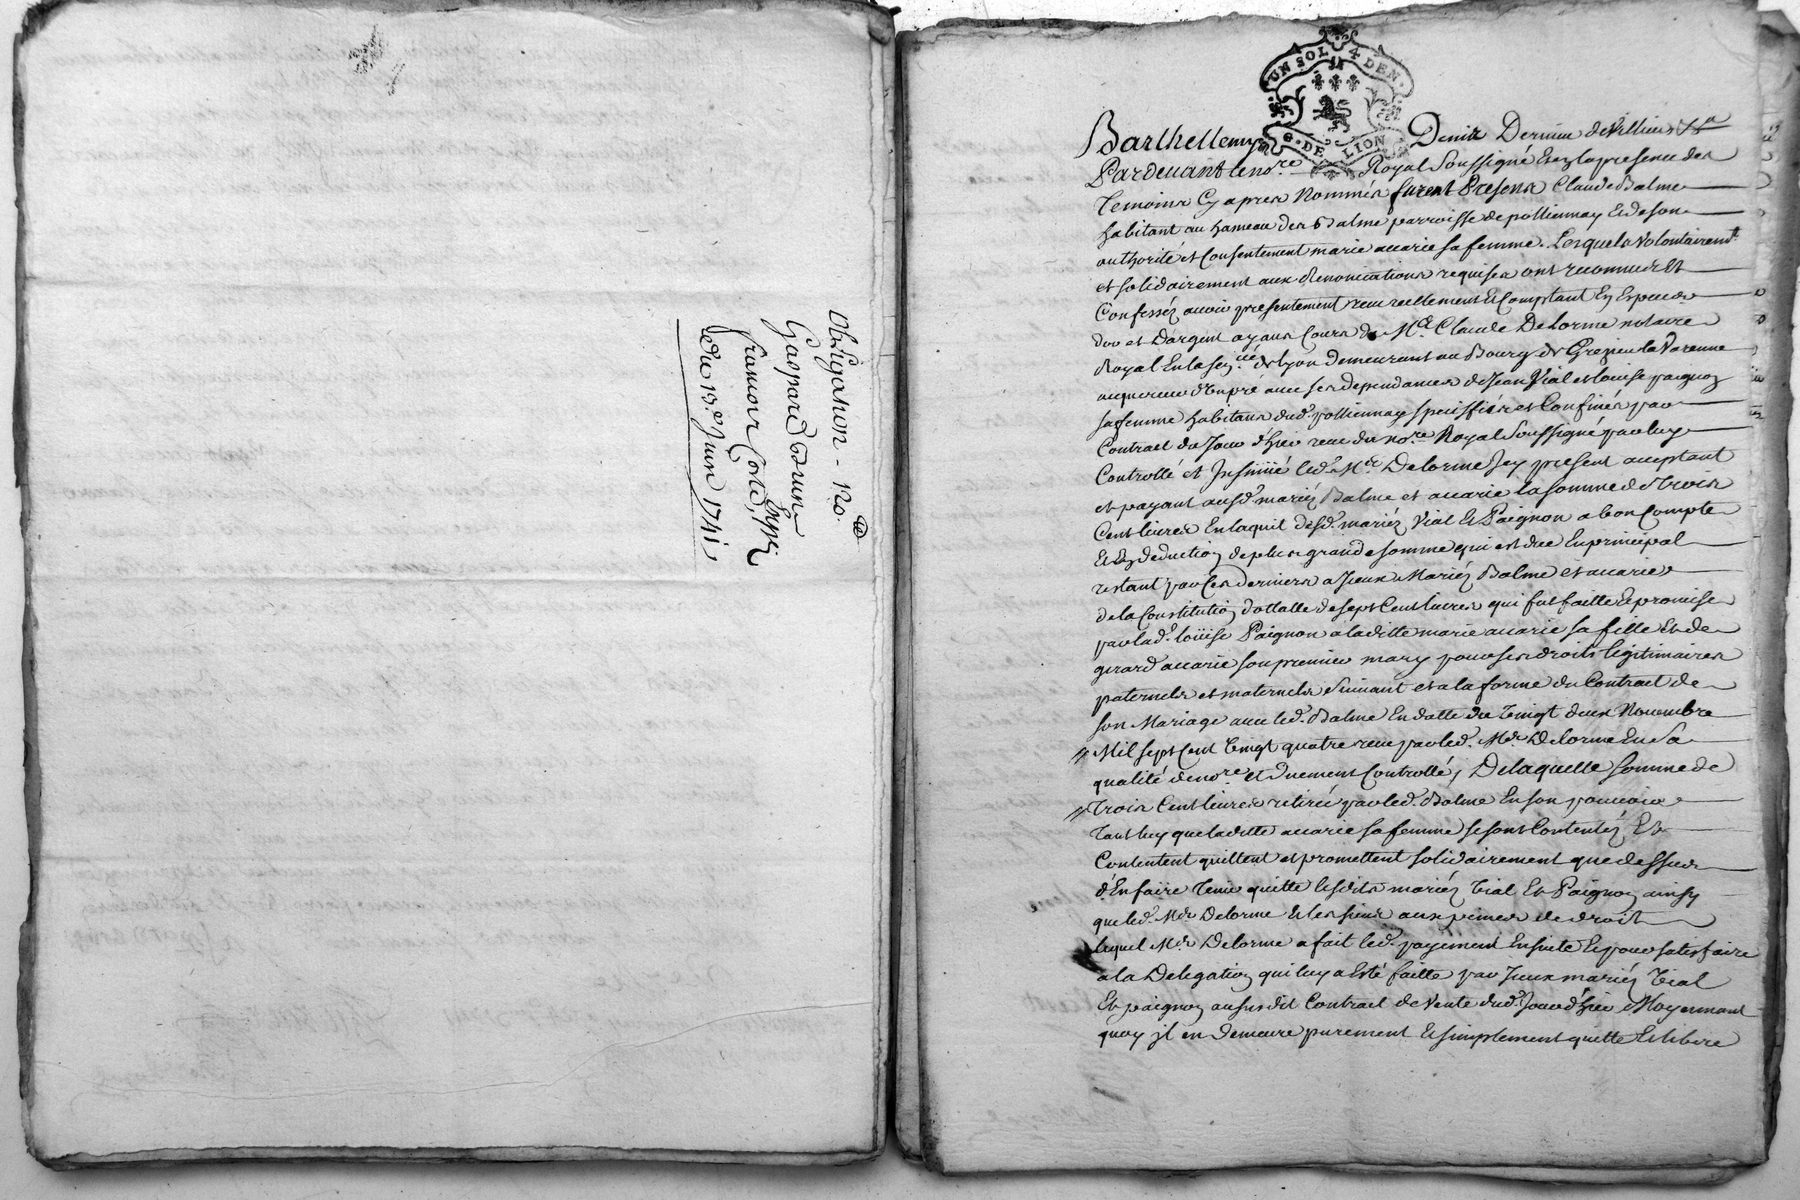 Obligation - 120ᵗᵗ
Gaspard Brun
francois Coste,
du 13.e Juin 1741
UN SOL 4 DEN.
G. DE LION
Barthellemy Denis
Pardevant le no.re Royal Soussigné et en la presence des
temoins Cy apres Nommés furent Presens Claude Balme
habitant au hameau des Balme parroisse de pollionnay et de son
authorité et Consentement marie accarie sa femme. Lesquels volontairemt.
et solidairement aux Renonciations requises ont reconnus et
Confessés avoir presentement receu reellement et Comptant En Especes
d'or et D'argent ayans Cours de Me. Claude Delorme notaire
Royal En la sen.cée de Lyon demeurant au Bourg de Grezieu la Varenne
acquereur d'un pré avec ses dependances de Jean Vial et louise paignon
sa femme habitans dud. pollionnay speciffiés et Confinés par
Contract du Jour d'hier receu du no.re Royal Soussigné qui sera
Controllé et Insinué led. Me. Delorme Icy present acceptant
et payant ausd. mariéz Balme et accarie la somme de Trois
Cent livres En l'aquit desd. mariéz Vial et Paignon a bon Compte
Et En deduction de plus grande somme qui est due En principal
restant par ces derniers a Iceux Mariéz Balme et accarie
de la Constitution dottalle de sept Cent livres qui fut faitte et promise
par lad. loüise Paignon a laditte marie accarie sa fille et de
girard accarie son premier mary pour ses droits legitimaires
paternels et maternels suivant et a la forme du Contract de
son Mariage avec led. Balme En datte du vingt deux Novembre
Mil sept Cent vingt quatre receu par led. Me. Delorme En sa
qualité de no.re et duement Controllé, De laquelle somme de
trois Cent livres retirée par led. Balme En son pouvoir
tant luy que laditte accarie sa femme se sont Contentéz Et
Contentent quittent et promettent solidairement que dessus
d'En faire tenir quitte lesdits mariéz Vial Et Paignon ainsy
que led. Me. Delorme et les siens aux peines de droit
lequel Me. Delorme a fait led. payement Ensuite et pour satisfaire
a la Delegation qui luy a Esté faitte par Iceux mariéz Vial
Et paignon au susdit Contract de vente dud. Jour d'hier Moyennant
quoy il en demeure purement et simplement quitte et libere